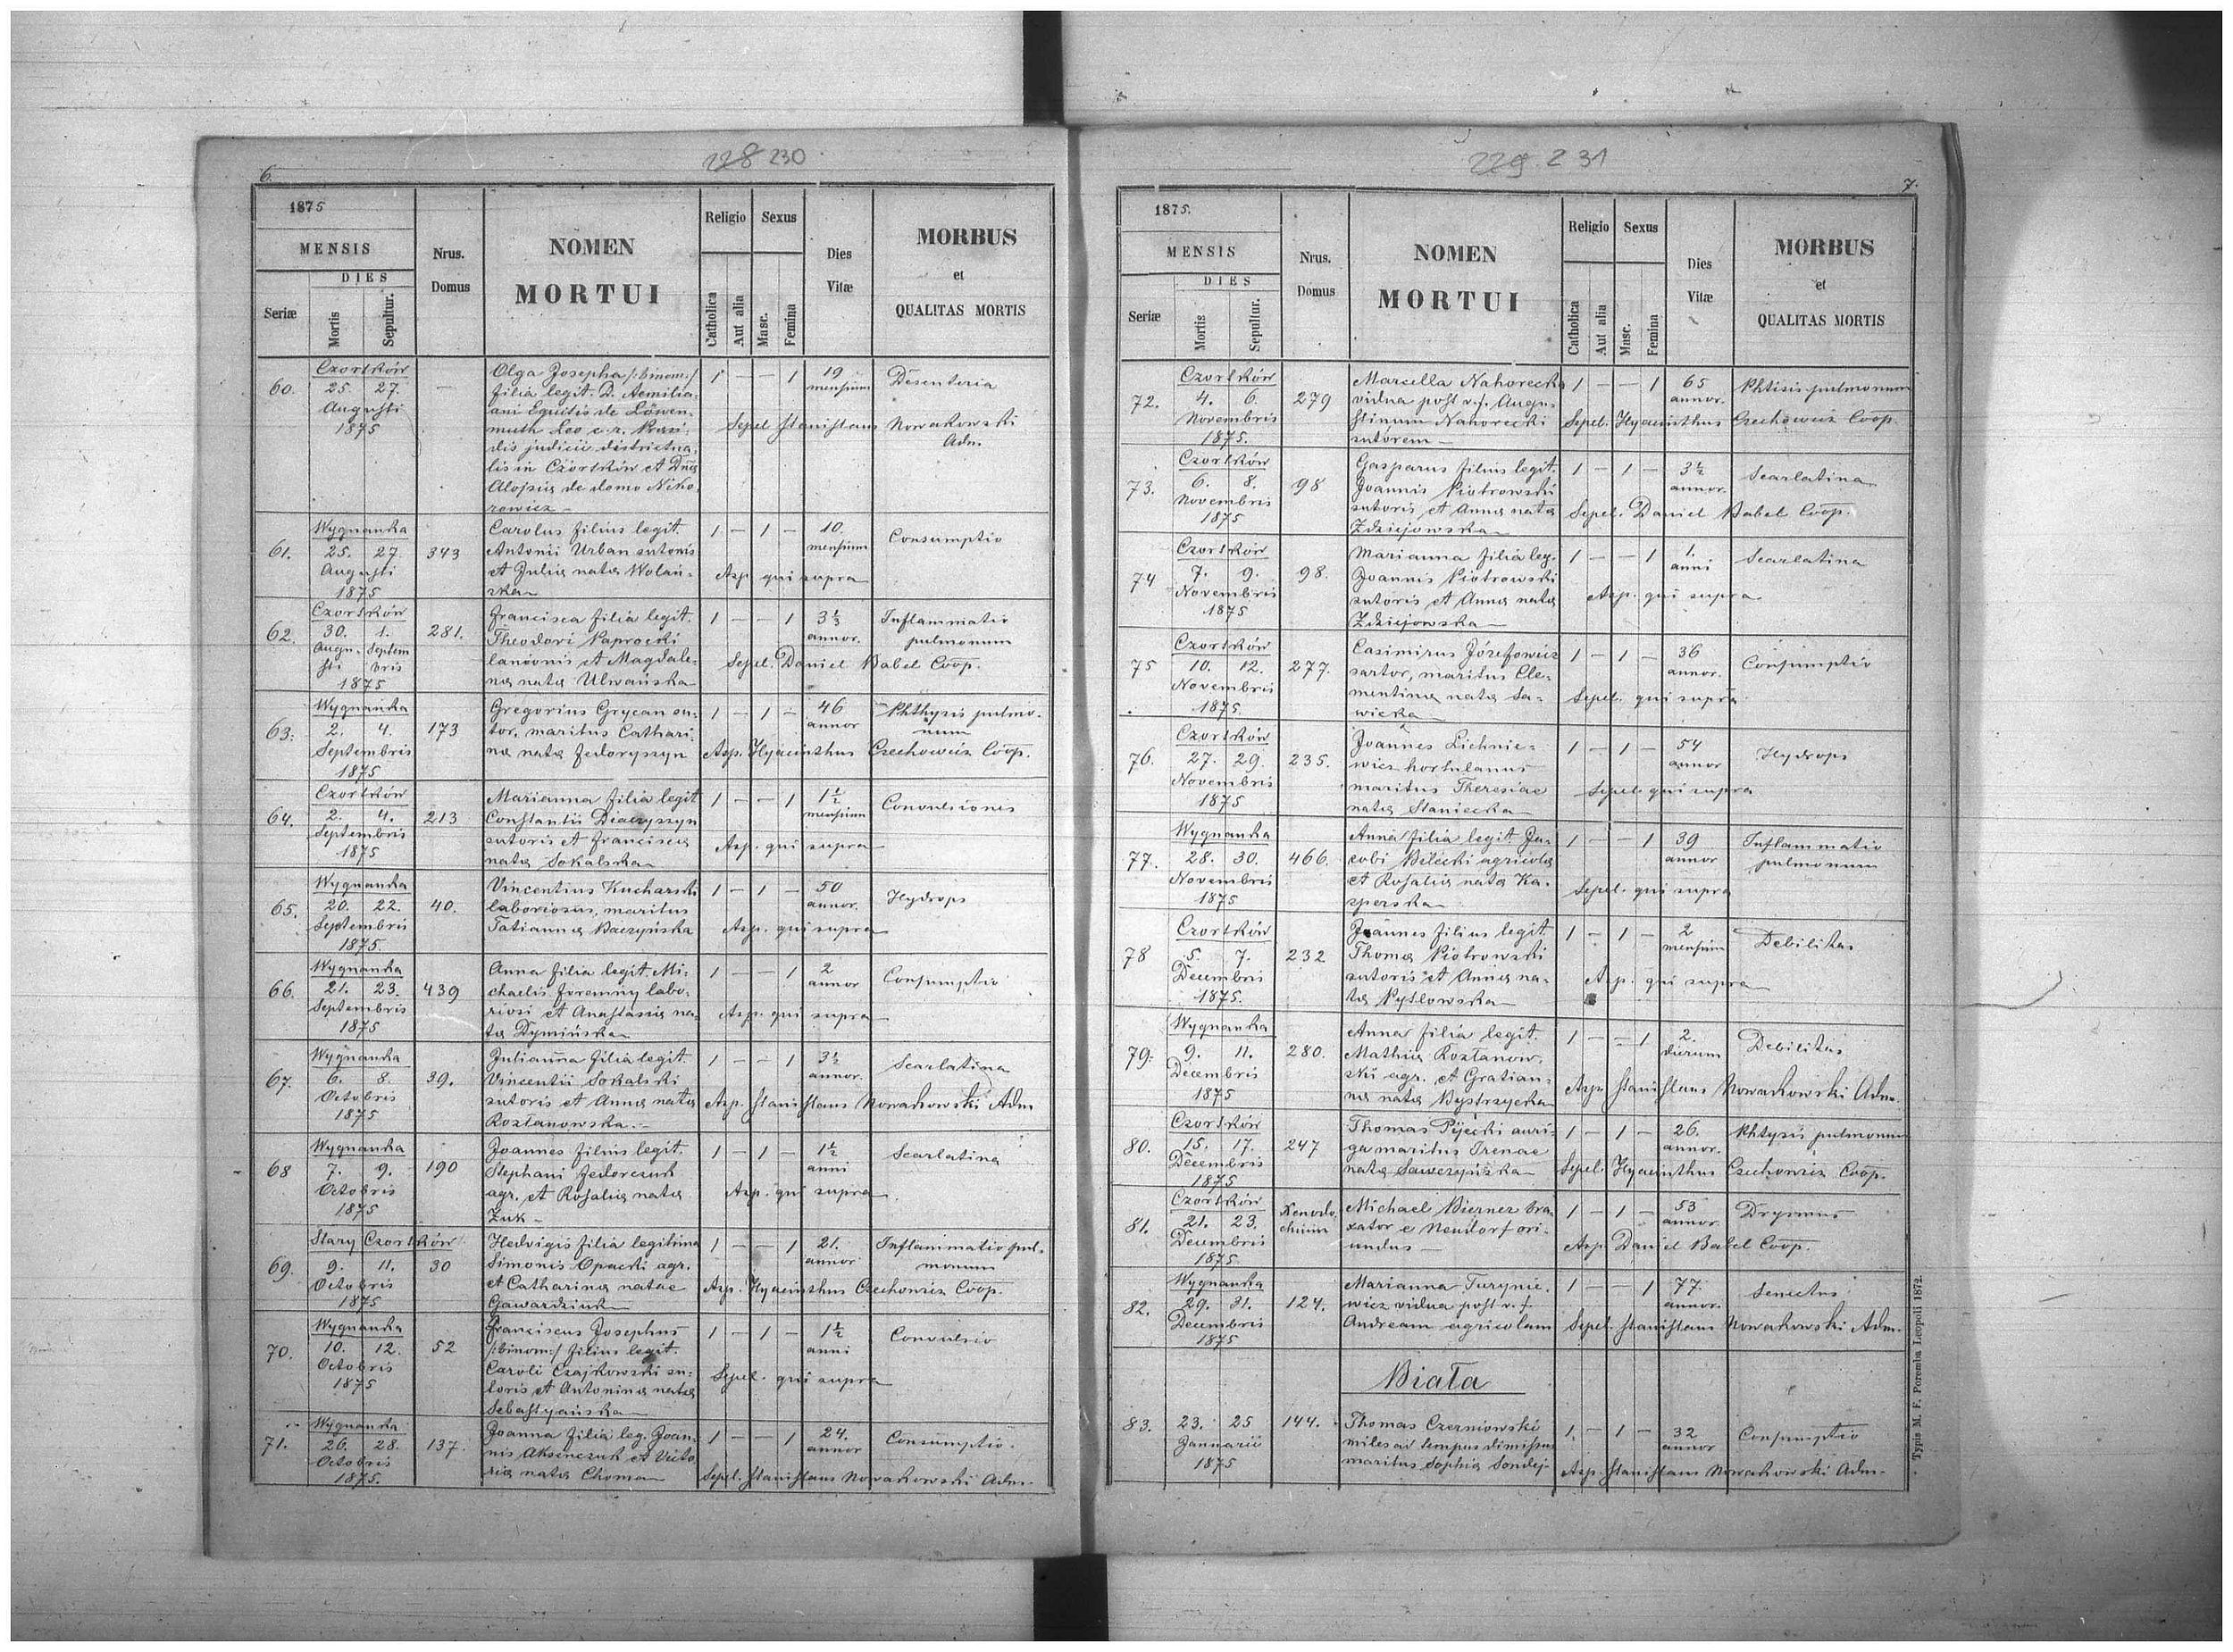 228 230
6.
1875
MENSIS
DIES
Seriæ
Mortis
Sepultur.
Nrus.
Domus
NOMEN
MORTUI
Religio
Sexus
Catholica
Aut alia
Masc.
Femina
Dies
Vitæ
MORBUS
et
QUALITAS MORTIS
60.
Czortków
25. 27.
Augusti
1875
—
Olga Josepha /:binom:/
filia legit. D. Aemilia-
ani Equitis de Löwen-
muth Leo c. r. Praesi-
dis judicii districtua-
lis in Czortków et Dnæ
Aloysiæ de domo Niko-
rowicz —
1 — — 1
19
mensium
Desenteria
Sepel. Stanislaus Nowakowski
Adm.
61.
Wygnanka
25. 27.
Augusti
1875
343
Carolus filius legit.
Antonii Urban sutoris
et Juliæ natæ Wolań-
ska
1 — 1 —
10.
mensium
Consumptio
Asp. qui supra
62.
Czortków
30. 1.
Augu- Septem
sti bris
1875
281.
Francisca filia legit.
Theodori Paprocki
lanionis et Magdale-
næ natæ Ulwańska
1 — — 1
3 1/3
annor.
Inflammatio
pulmonum
Sepel. Daniel Babel Coop.
63.
Wygnanka
2. 4.
Septembris
1875
173
Gregorius Grycan su-
tor, maritus Cathari-
næ natæ Fedoryszyn
1 — 1 —
46
annor
Phthysis pulmo-
num
Asp. Hyacinthus Czechowicz Coop.
64.
Czortków
2. 4.
Septembris
1875
213
Marianna filia legit
Constantii Diaczyszyn
sutoris et Franciscæ
natæ Sokalska
1 — — 1
1 1/2
mensium
Convulsiones
Asp. qui supra
65.
Wygnanka
20. 22.
Septembris
1875.
40.
Vincentius Kucharski
laboriosus, maritus
Tatiannæ Baczyńska
1 — 1 —
50
annor.
Hydrops
Asp. qui supra
66.
Wygnanka
21. 23.
Septembris
1875
439
Anna filia legit. Mi-
chaelis Foremny labo-
riosi et Anastasiæ na-
tæ Dymińska
1 — — 1
2
annor
Consumptio
Asp. qui supra
67.
Wygnanka
6. 8.
Octobris
1875
39.
Julianna filia legit.
Vincentii Sokalski
sutoris et Annæ natæ
Kozłanowska. —
1 — — 1
3 1/2
annor.
Scarlatina
Asp. Stanislaus Nowakowski Adm
68
Wygnanka
7. 9.
Octobris
1875
190
Joannes filius legit.
Stephani Fedorczuk
agr. et Rosaliæ natæ
Żuk —
1 — 1 —
1 1/2
anni
Scarlatina
Asp. qui supra
69.
Stary Czortków
9. 11.
Octobris
1875
30
Hedvigis filia legitima
Simonis Opacki agr.
et Catharinæ natae
Gawardziuk
1 — — 1
21.
annor
Inflammatio pul-
monum
Asp. Hyacinthus Czechowicz Coop.
70.
Wygnanka
10. 12.
Octobris
1875
52
Franciscus Josephus
/:binom:/ filius legit.
Caroli Czajkowski su-
toris et Antoninæ natæ
Sebastyańska
1 — 1 —
1 1/2
anni
Convulsio
Sepel. qui supra
71.
Wygnanka
26. 28.
Octobris
1875.
137.
Joanna filia leg. Joan-
nis Aksenczuk et Victo-
riæ natæ Choma
1 — — 1
24.
annor
Consumptio.
Sepel. Stanislaus Nowakowski Adm.
229. 231
7.
1875.
MENSIS
DIES
Seriæ
Mortis
Sepultur.
Nrus.
Domus
NOMEN
MORTUI
Religio
Sexus
Catholica
Aut alia
Masc.
Femina
Dies
Vitæ
MORBUS
et
QUALITAS MORTIS
72.
Czortków
4. 6.
Novembris
1875.
279
Marcella Nahorecka
vidua post v. f. Augu-
stinum Nahorecki
sutorem —
1 — — 1
65
annor.
Phtisis pulmonum
Sepel. Hyacinthus Czechowicz Coop.
73.
Czortków
6. 8.
Novembris
1875
98
Gasparus filius legit.
Joannis Piotrowski
sutoris et Annæ natæ
Zdziejowska
1 — 1 —
3 1/2
annor.
Scarlatina
Sepel. Daniel Babel Coop.
74
Czortków
7. 9.
Novembris
1875
98.
Marianna filia leg.
Joannis Piotrowski
sutoris et Annæ natæ
Zdziejowska
1 — — 1
1.
anni
Scarlatina
Asp. qui supra
75
Czortków
10. 12.
Novembris
1875.
277.
Casimirus Józefowicz
sartor, maritus Cle-
mentinæ natæ Sa-
wicka
1 — 1 —
36
annor.
Consumptio
Sepel. qui supra
76.
Czortków
27. 29.
Novembris
1875
235.
Joannes Lichnie-
wicz hortulanus
maritus Theresiae
natæ Staniecka
1 — 1 —
54
annor
Hydrops
Sepel. qui supra
77.
Wygnanka
28. 30.
Novembris
1875
466.
Anna filia legit. Ja-
cobi Bilecki agricolæ
et Rosaliæ natæ Ka-
sperska
1 — — 1
39
annor
Inflammatio
pulmonum
Sepel. qui supra
78
Czortków
5. 7.
Decembris
1875.
232
Joannes filius legit
Thomæ Piotrowski
sutoris et Annæ na-
tæ Pytlowska
1 — 1 —
2
mensium
Debilitas
Asp. qui supra
79.
Wygnanka
9. 11.
Decembris
1875
280.
Anna filia legit.
Mathiæ Kozłanow-
ski agr. et Gratian-
næ natæ Bystrzycka
1 — — 1
2.
dierum
Debilitas
Asp. Stanislaus Nowakowski Adm.
80.
Czortków
15. 17.
Decembris
1875
247
Thomas Pijecki auri-
ga maritus Irenae
natæ Sawczyńska
1 — 1 —
26.
annor.
Phtysis pulmonum
Sepel. Hyacinthus Czechowicz Coop.
81.
Czortków
21. 23.
Decembris
1875
Xenodo-
chium
Michael Bierner bra-
xator e Neudorf ori-
undus —
1 — 1 —
53
annor.
Asp. Daniel Babel Coop.
82.
Wygnanka
29. 31.
Decembris
1875
124.
Marianna Turynie-
wicz vidua post v. f.
Andream agricolam
1 — — 1
77.
annor.
Senectus
Sepel. Stanislaus Nowakowski Adm.
Biała
83.
23. 25
Januarii
1875
144.
Thomas Czerniowski
miles ad tempus dimissus
maritus Sophiæ Sondej-
1. — 1 —
32
annor
Consumptio
Asp. Stanislaus Nowakowski Adm.
Typis M. F. Poremba Leopoli 1872.